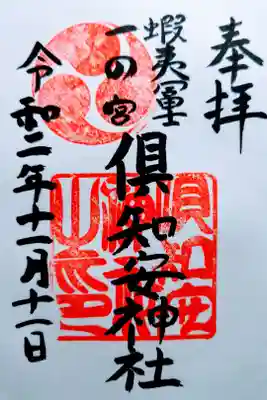 奉拝
蝦夷富士
一の宮
倶知安神社
令和二年十一月十一日
倶知安
神社
之印